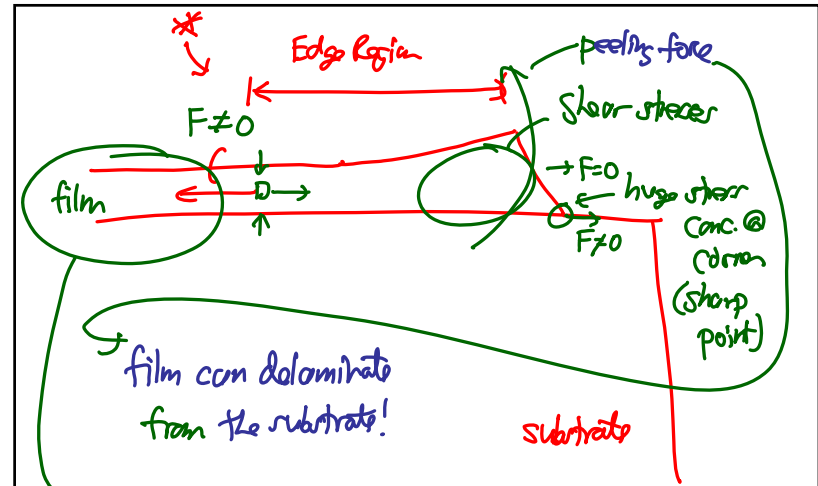 Edge Region
peeling force
F≠0
shear stresses
film
→ F=0
huge stress
conc. @
corner
(sharp
point)
F≠0
film can delaminate
from the substrate!
substrate